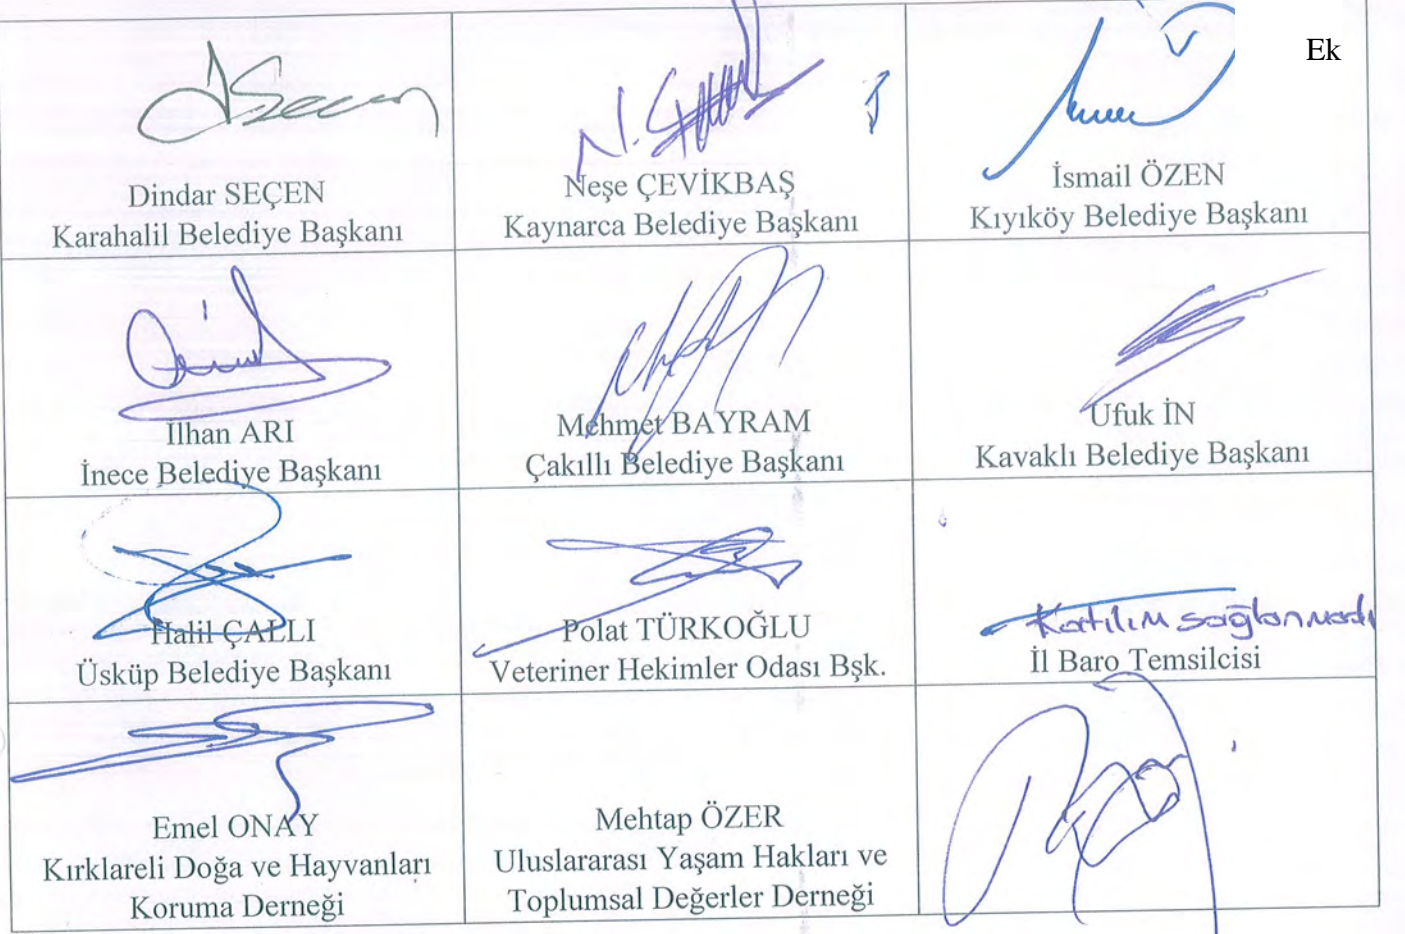 Ek
Dindar SEÇEN
Karahalil Belediye Başkanı
Neşe ÇEVİKBAŞ
Kaynarca Belediye Başkanı
İsmail ÖZEN
Kıyıköy Belediye Başkanı
İlhan ARI
İnece Belediye Başkanı
Mehmet BAYRAM
Çakıllı Belediye Başkanı
Ufuk İN
Kavaklı Belediye Başkanı
Halil ÇALLI
Üsküp Belediye Başkanı
Polat TÜRKOĞLU
Veteriner Hekimler Odası Bşk.
Katılım sağlanmadı
İl Baro Temsilcisi
Emel ONAY
Kırklareli Doğa ve Hayvanları
Koruma Derneği
Mehtap ÖZER
Uluslararası Yaşam Hakları ve
Toplumsal Değerler Derneği